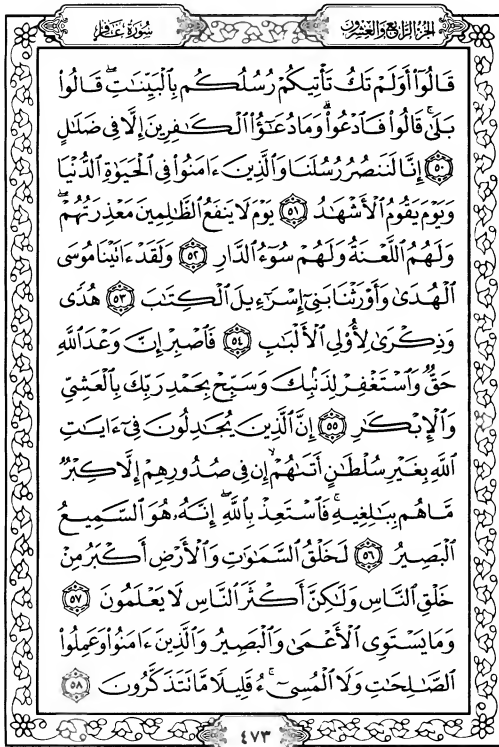 سُورَةُ غَافِرٍ
الجُزْءُ الرَّابِعُ وَالْعِشْرُونَ
قَالُوٓاْ أَوَلَمْ تَكُ تَأْتِيكُمْ رُسُلُكُم بِٱلْبَيِّنَٰتِۖ قَالُواْ
بَلَىٰۚ قَالُواْ فَٱدْعُواْۗ وَمَا دُعَٰٓؤُاْ ٱلْكَٰفِرِينَ إِلَّا فِى ضَلَٰلٍ
٥٠ إِنَّا لَنَنصُرُ رُسُلَنَا وَٱلَّذِينَ ءَامَنُواْ فِى ٱلْحَيَوٰةِ ٱلدُّنْيَا
وَيَوْمَ يَقُومُ ٱلْأَشْهَٰدُ ٥١ يَوْمَ لَا يَنفَعُ ٱلظَّٰلِمِينَ مَعْذِرَتُهُمْۖ
وَلَهُمُ ٱللَّعْنَةُ وَلَهُمْ سُوٓءُ ٱلدَّارِ ٥٢ وَلَقَدْ ءَاتَيْنَا مُوسَى
ٱلْهُدَىٰ وَأَوْرَثْنَا بَنِىٓ إِسْرَٰٓءِيلَ ٱلْكِتَٰبَ ٥٣ هُدًى
وَذِكْرَىٰ لِأُوْلِى ٱلْأَلْبَٰبِ ٥٤ فَٱصْبِرْ إِنَّ وَعْدَ ٱللَّهِ
حَقٌّ وَٱسْتَغْفِرْ لِذَنۢبِكَ وَسَبِّحْ بِحَمْدِ رَبِّكَ بِٱلْعَشِىِّ
وَٱلْإِبْكَٰرِ ٥٥ إِنَّ ٱلَّذِينَ يُجَٰدِلُونَ فِىٓ ءَايَٰتِ
ٱللَّهِ بِغَيْرِ سُلْطَٰنٍ أَتَىٰهُمْۙ إِن فِى صُدُورِهِمْ إِلَّا كِبْرٌ
مَّا هُم بِبَٰلِغِيهِۚ فَٱسْتَعِذْ بِٱللَّهِۖ إِنَّهُۥ هُوَ ٱلسَّمِيعُ
ٱلْبَصِيرُ ٥٦ لَخَلْقُ ٱلسَّمَٰوَٰتِ وَٱلْأَرْضِ أَكْبَرُ مِنْ
خَلْقِ ٱلنَّاسِ وَلَٰكِنَّ أَكْثَرَ ٱلنَّاسِ لَا يَعْلَمُونَ ٥٧
وَمَا يَسْتَوِى ٱلْأَعْمَىٰ وَٱلْبَصِيرُ وَٱلَّذِينَ ءَامَنُواْ وَعَمِلُواْ
ٱلصَّٰلِحَٰتِ وَلَا ٱلْمُسِىٓءُۚ قَلِيلًا مَّا تَتَذَكَّرُونَ ٥٨
٤٧٣